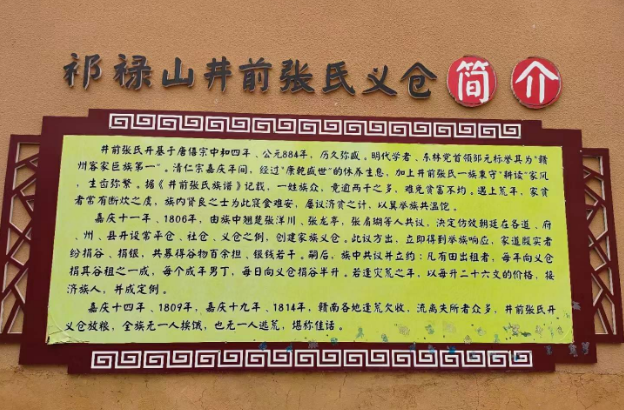 祁禄山井前张氏义仓简介
井前张氏开基于唐僖宗中和四年，公元884年，历久弥盛。明代学者、东林党首领邹元标举其为“赣
州客家巨族第一”。清仁宗嘉庆年间，经过“康乾盛世”的休养生息，加上井前张氏一族秉守“耕读”家风
，生齿弥繁。据《井前张氏族谱》记载，一姓族众，竟逾两千之多，难免贫富不均。遇上荒年，家贫
者常有断炊之虞，族内贤良之士为此寝食难安，屡议济贫之计，以冀举族共温饱。
嘉庆十一年、1806年，由族中翘楚张洋川、张龙亭，张肩湖等人共议，决定仿效朝廷在各道、府
、州、县开设常平仓、社仓、义仓之例，创建家族义仓。此议方出，立即得到举族响应，家道殷实者
纷捐谷、捐银，共募得谷物百余担、银钱若干。嗣后，族中共议并立约：凡有田出租者，每年向义仓
捐其谷租之一成，每个成年男丁，每日向义仓捐谷半升。若逢灾荒之年，以每升二十六文的价格，接
济族人，并成定例。
嘉庆十四年、1809年，嘉庆十九年、1814年，赣南各地逢荒欠收，流离失所者众多，井前张氏开
义仓放粮，全族无一人挨饿，也无一人逃荒，堪称佳话。